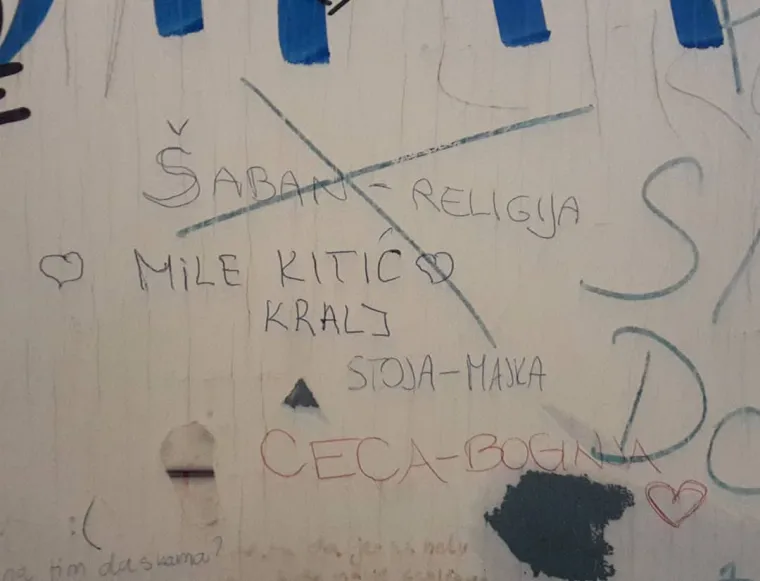 ŠABAN - RELIGIJA
MiLE KITIĆ
KRALJ
STOJA-MAJKA
CECA-BOGINJA
:(
tim daskama?